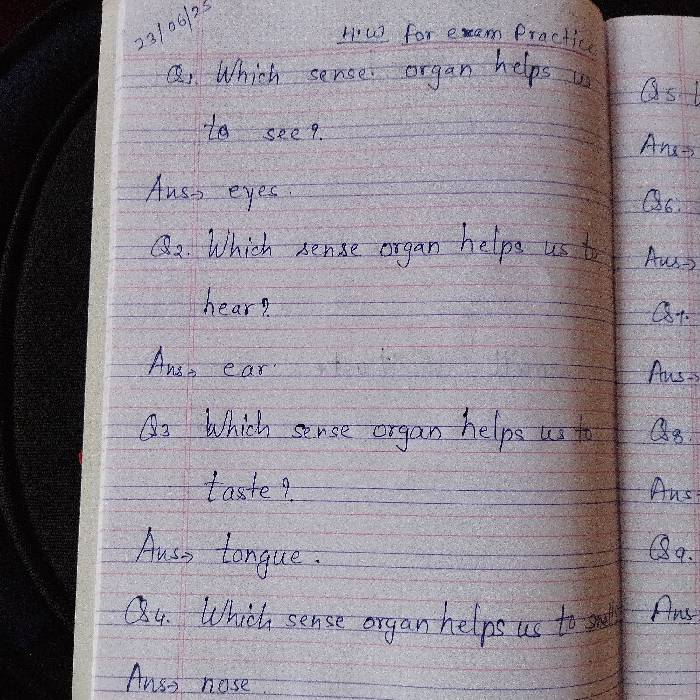 23/06/25
H.W for exam Practice
Q1 Which sense organ helps us
to see?
Ans→ eyes.
Q2. Which sense organ helps us to
hear?
Ans→ ear.
Q3 Which sense organ helps us to
taste?
Ans→ tongue.
Q4. Which sense organ helps us to smell
Ans→ nose
Q5
Ans→
Q6.
Ans→
Q7.
Ans→
Q8.
Ans
Q9.
Ans